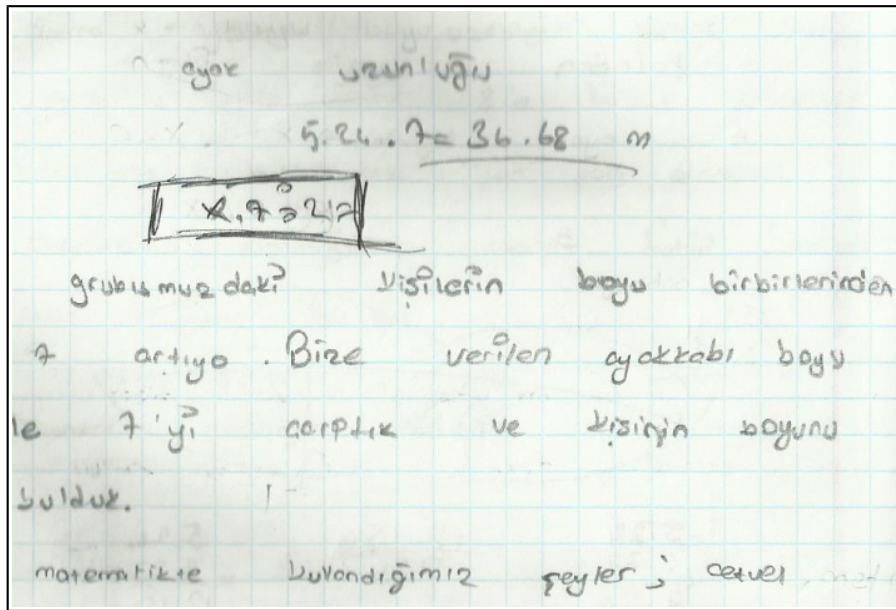 ayak uzunluğu
5.24 . 7 = 36.68 m
x.7=
grubumuzdaki kişilerin boyu birbirlerinden
7 artıyo . Bize verilen ayakkabı boyu
le 7'yi çarptık ve kişinin boyunu
bulduk.
matematikte kullandığımız şeyler ; cetvel,